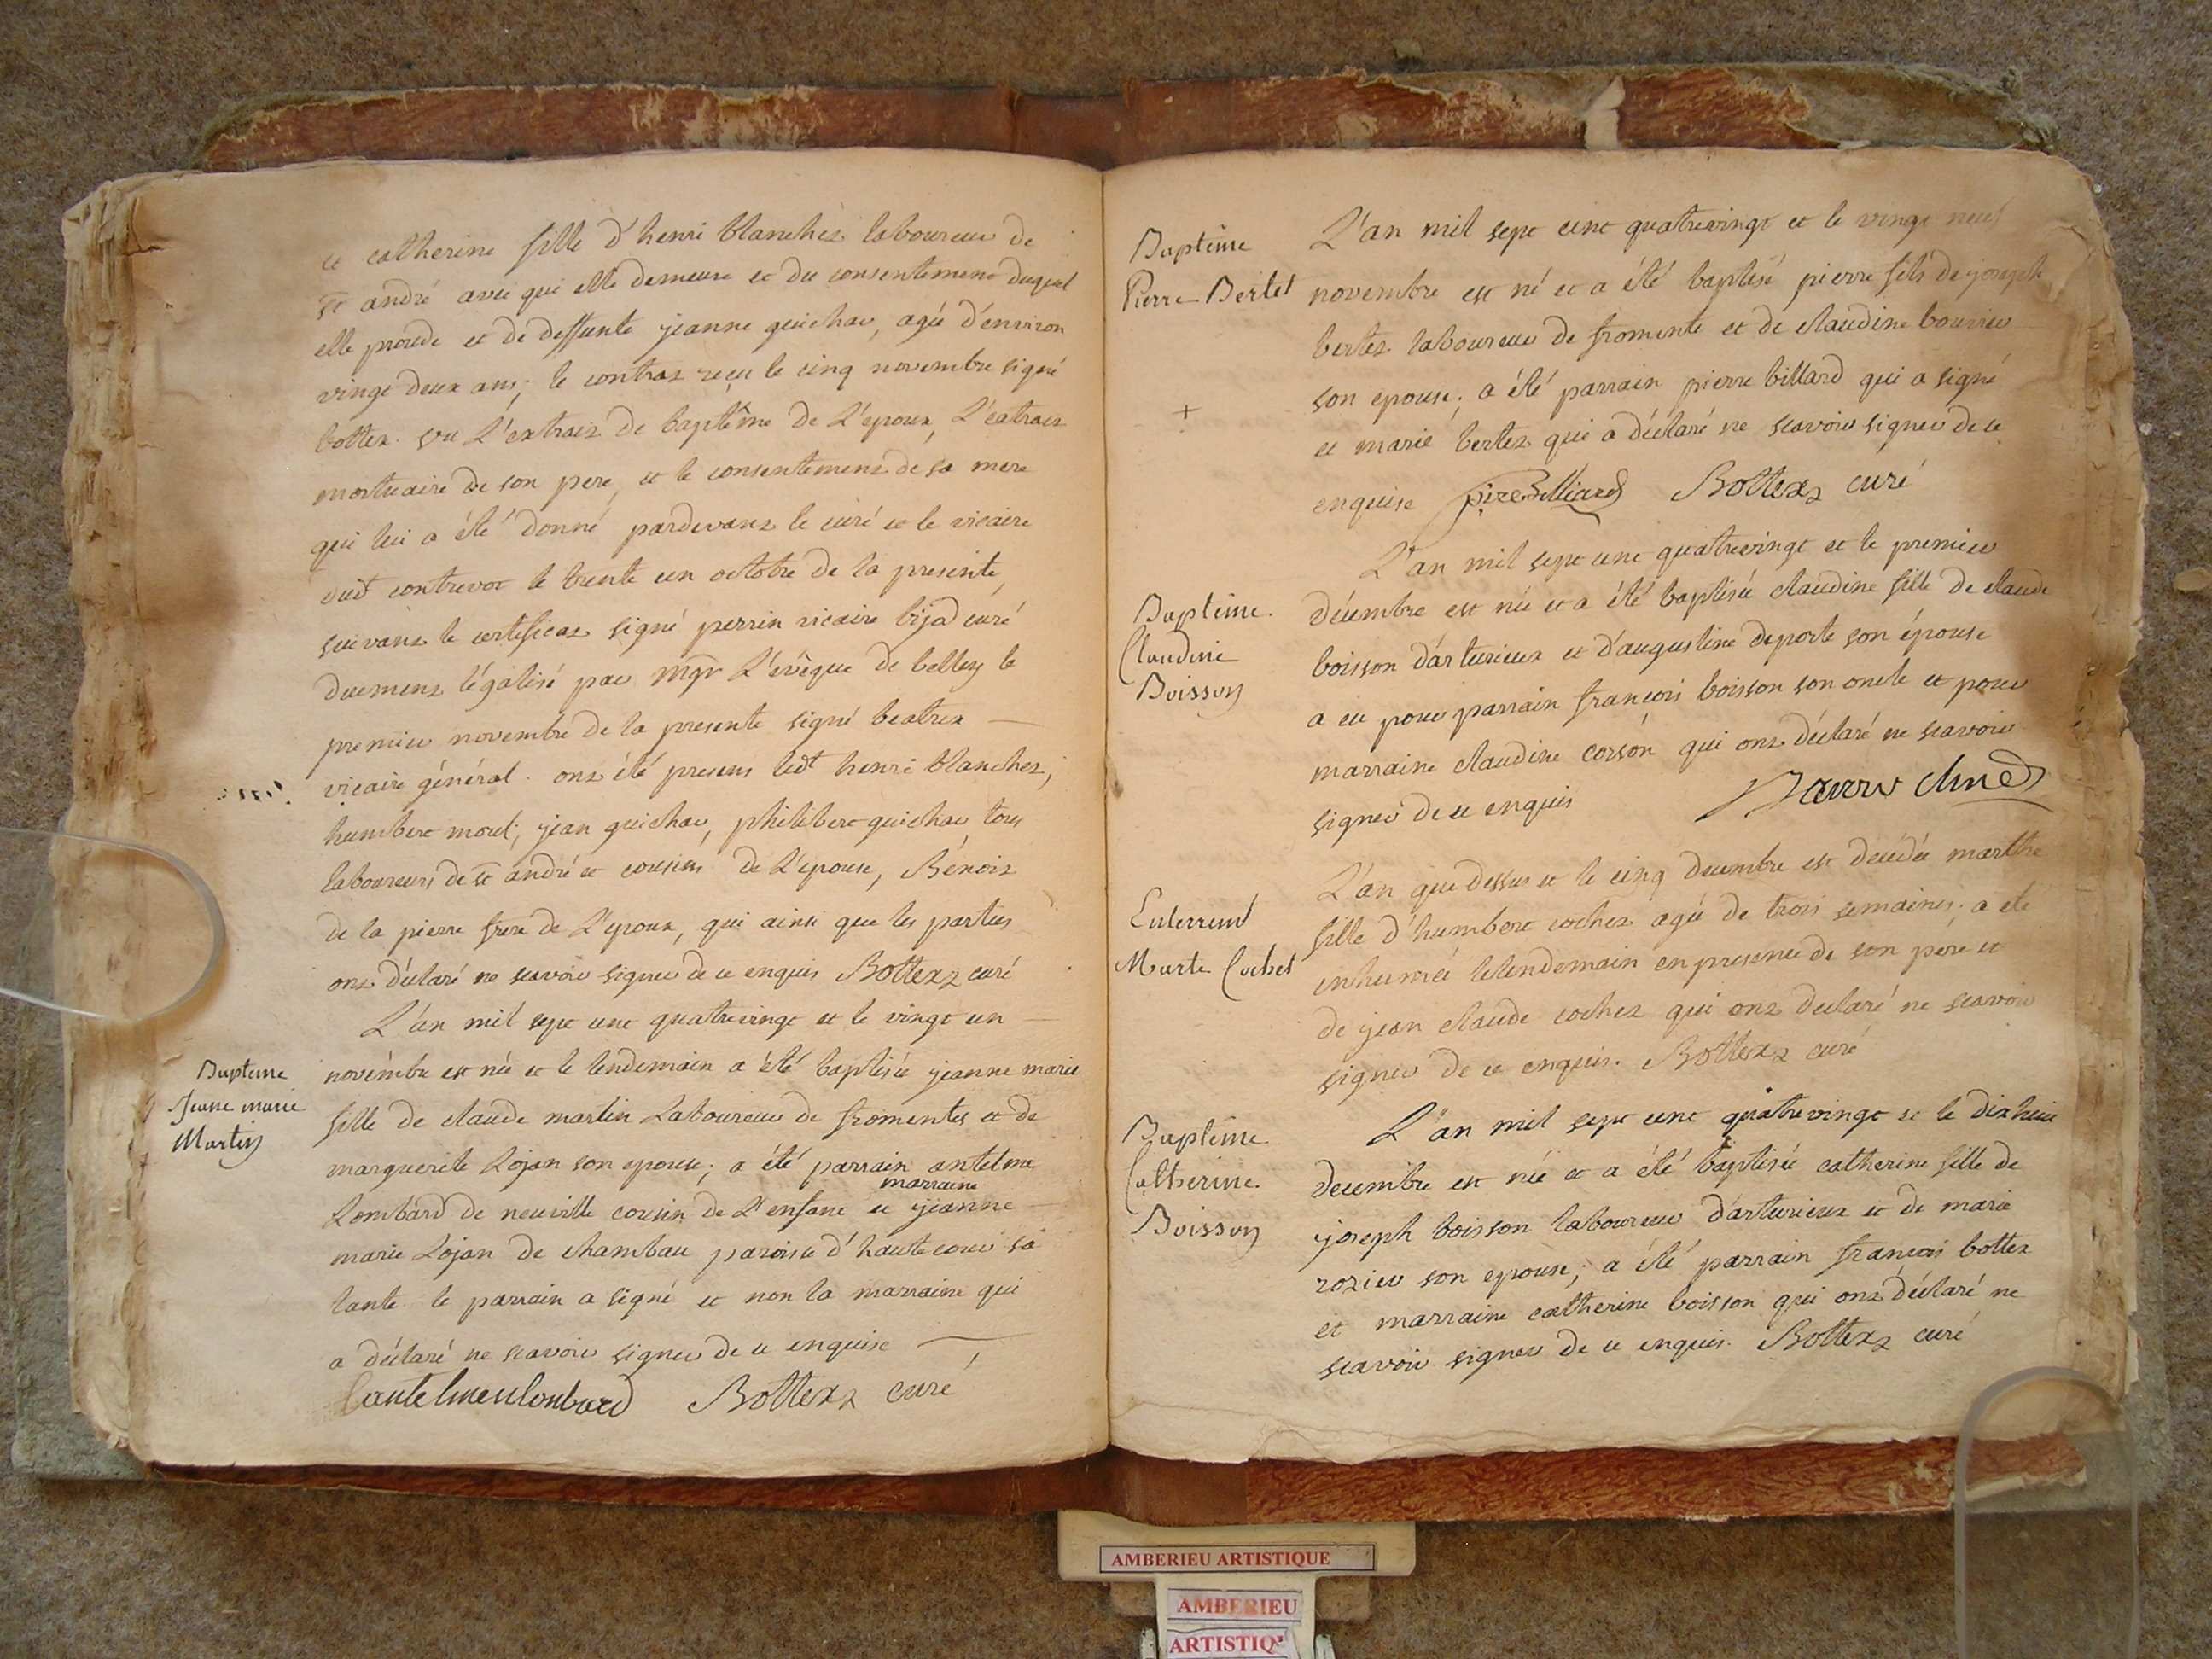 et catherine fille d'henri blanchet laboureur de
st andré avec qui elle demeure et du consentement duquel
elle procede et de deffunte jeanne guichar, agée d'environ
vingt deux ans; le contrat reçu le cinq novembre signé
bottex. vu L'extrait de baptême de L'epoux, L'extrait
mortuaire de son pere, et le consentement de sa mere
qui lui a été donné pardevant le curé et le vicaire
dudt contrevoz le trente un octobre de la presente,
suivant le certificat signé perrin vicaire bijod curé
duement légalisé par Mgr L'evêque de belley le
premier novembre de la presente signé beatrix
vicaire général. ont été presens ledt henri blanchet,
humbert morel, jean guichar, philibert guichar, tous
laboureurs de st andré et cousins de L'epouse, Bénoit
de la pierre frere de L'epoux, qui ainsi que les parties
ont déclaré ne scavoir signer de ce enquis Bottex curé
Bapteme
Jeanne marie
Martin
L'an mil sept cent quatrevingt et le vingt un
novembre est née et le lendemain a été baptisée jeanne marie
fille de claude martin Laboureur de fromentes et de
marguerite Lojan son epouse; a été parrain antelme
marraine
Lombard de neuville cousin de L'enfant et jeanne
marie Lojan de chambau paroisse d'hautecour sa
tante le parrain a signé et non la marraine qui
a déclaré ne scavoir signer de ce enquise
Lantelme lonbard Bottex curé
Baptême
Pierre Bertet
+
L'an mil sept cent quatrevingt et le vingt neuf
novembre est né et a été baptisé pierre fils de joseph
bertet laboureur de fromente et de claudine bouvier
son epouse; a été parrain pierre billard qui a signé
et marie bertet qui a déclaré ne scavoir signer de ce
enquise pire Billiard Bottex curé
Baptême
Claudine
Boisson
L'an mil sept cent quatrevingt et le premier
décembre est née et a été baptisée claudine fille de claude
boisson d'arturieux et d'augustine deporte son épouse
a eu pour parrain françois boisson son oncle et pour
marraine claudine corson qui ont déclaré ne scavoir
signer de ce enquis
Enterremt
Marte Cochet
L'an que dessus et le cinq decembre est decedée marthe
fille d'humbert cochet agée de trois semaines; a ete
inhumée le lendemain en presence de son père et
de jean claude cochet qui ont declaré ne scavoir
signer de ce enquis. Bottex curé
Baptême
Catherine
Boisson
L'an mil sept cent quatrevingt et le dix huit
decembre est née et a été baptisée catherine fille de
joseph boisson laboureur d'arturieux et de marie
rozier son epouse; a été parrain françois bottex
et marraine catherine boisson qui ont déclaré ne
scavoir signer de ce enquis. Bottex curé
AMBERIEU ARTISTIQUE
AMBERIEU
ARTISTIQ